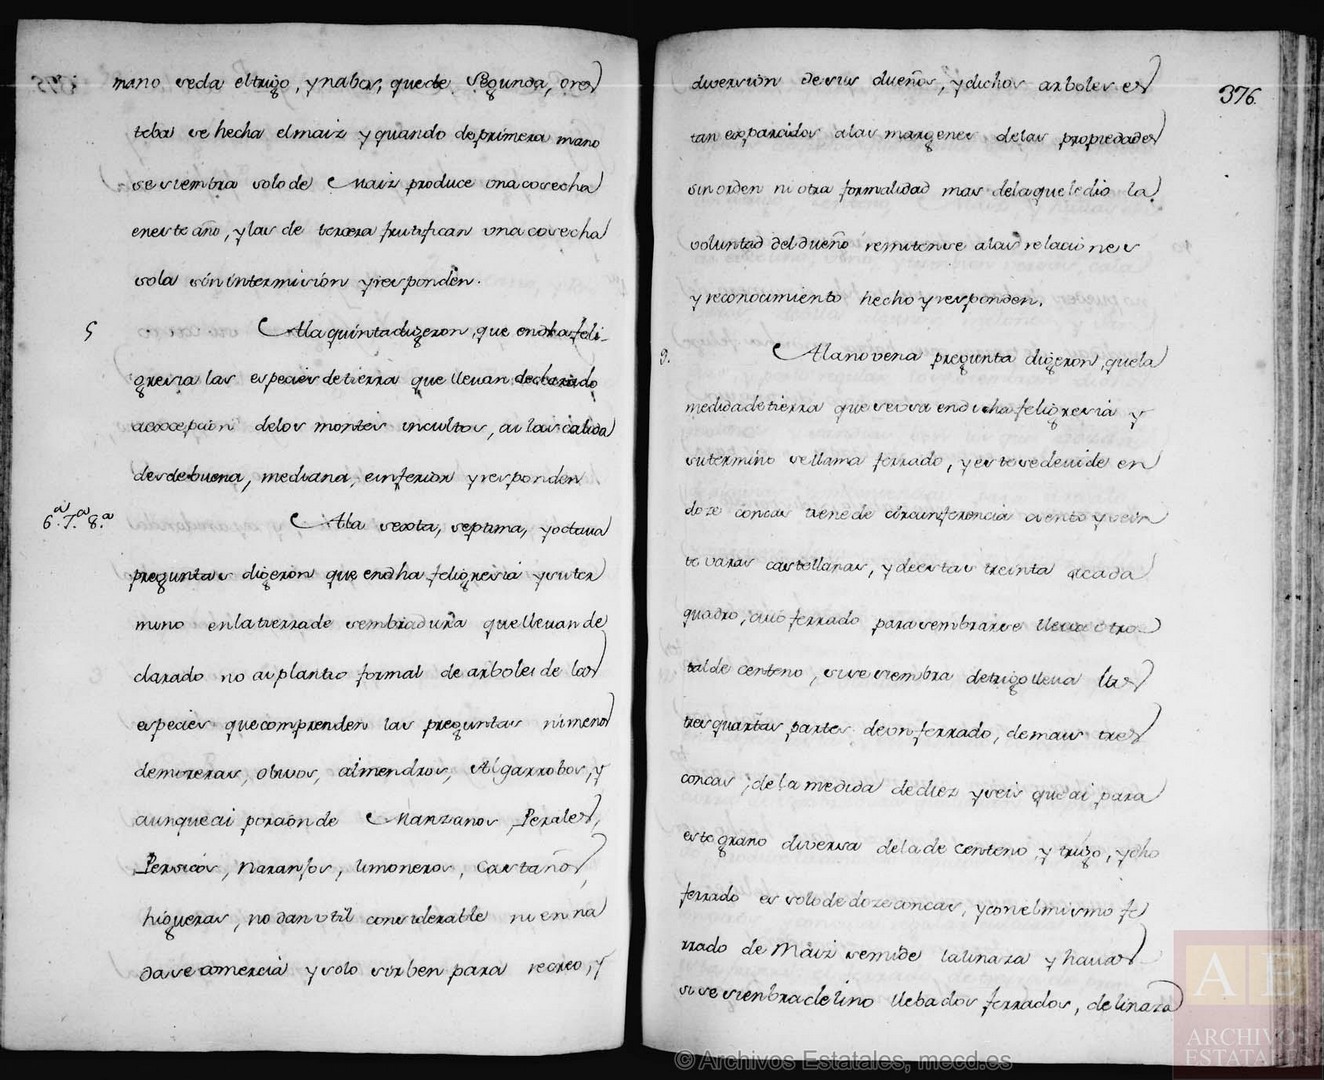 mano se da el trigo, y nabos, que de segunda, oros
teba se hecha el maiz y quando de primera mano
se siembra solo de Maiz produce una cosecha
en este año, y las de tercera frutifican una cosecha
sola sin intermision y responden.
5 A la quinta digeron, que en dha feli-
gresia las especies de tierra que llevan declarado
a excepcion de los montes incultos, ai las calida
des de buena, mediana, e inferior y responden
6.ª 7.ª 8.ª A la sexta, septima, y octava
preguntas digeron que en dha feligresia y su ter
mino en la tierra de sembradura que llevan de
clarado no ai plantio formal de arboles de las
especies que comprenden las preguntas ni menos
de moreras, olivos, almendros, Algarrobos, y
aunque ai porcion de Manzanos, Perales,
Persicos, Naranjos, limoneros, Castaños,
higueras, no dan util considerable ni en na
da se comercia y solo sirben para recreo, y
diversion de sus dueños, y dichos arboles es
376.
tan esparcidos a las margenes de las propiedades
sin orden ni otra formalidad mas de la que le dio la
voluntad del dueño remitense a las relaciones
y reconocimiento hecho y responden.
9. A la novena pregunta digeron, que la
medida de tierra que se usa en dicha feligresia y
su termino se llama ferrado, y este se devide en
doze concas tiene de circunferencia ciento y vein
te varas castellanas, y de estas treinta a cada
quadro, cuio ferrado para sembrarse lleva otro
tal de centeno, si se siembra de trigo lleva las
tres quartas partes de un ferrado, de mais tres
concas, de la medida de diez y seis que ai para
este grano diversa de la de centeno, y trigo, y dho
ferrado es solo de doze concas, y con el mismo fe
rrado de Maiz se mide la linaza y havas
si se sienbra de lino lleba dos ferrados, de linaza
© Archivos Estatales, mecd.es
A E
ARCHIVOS
ESTATALES